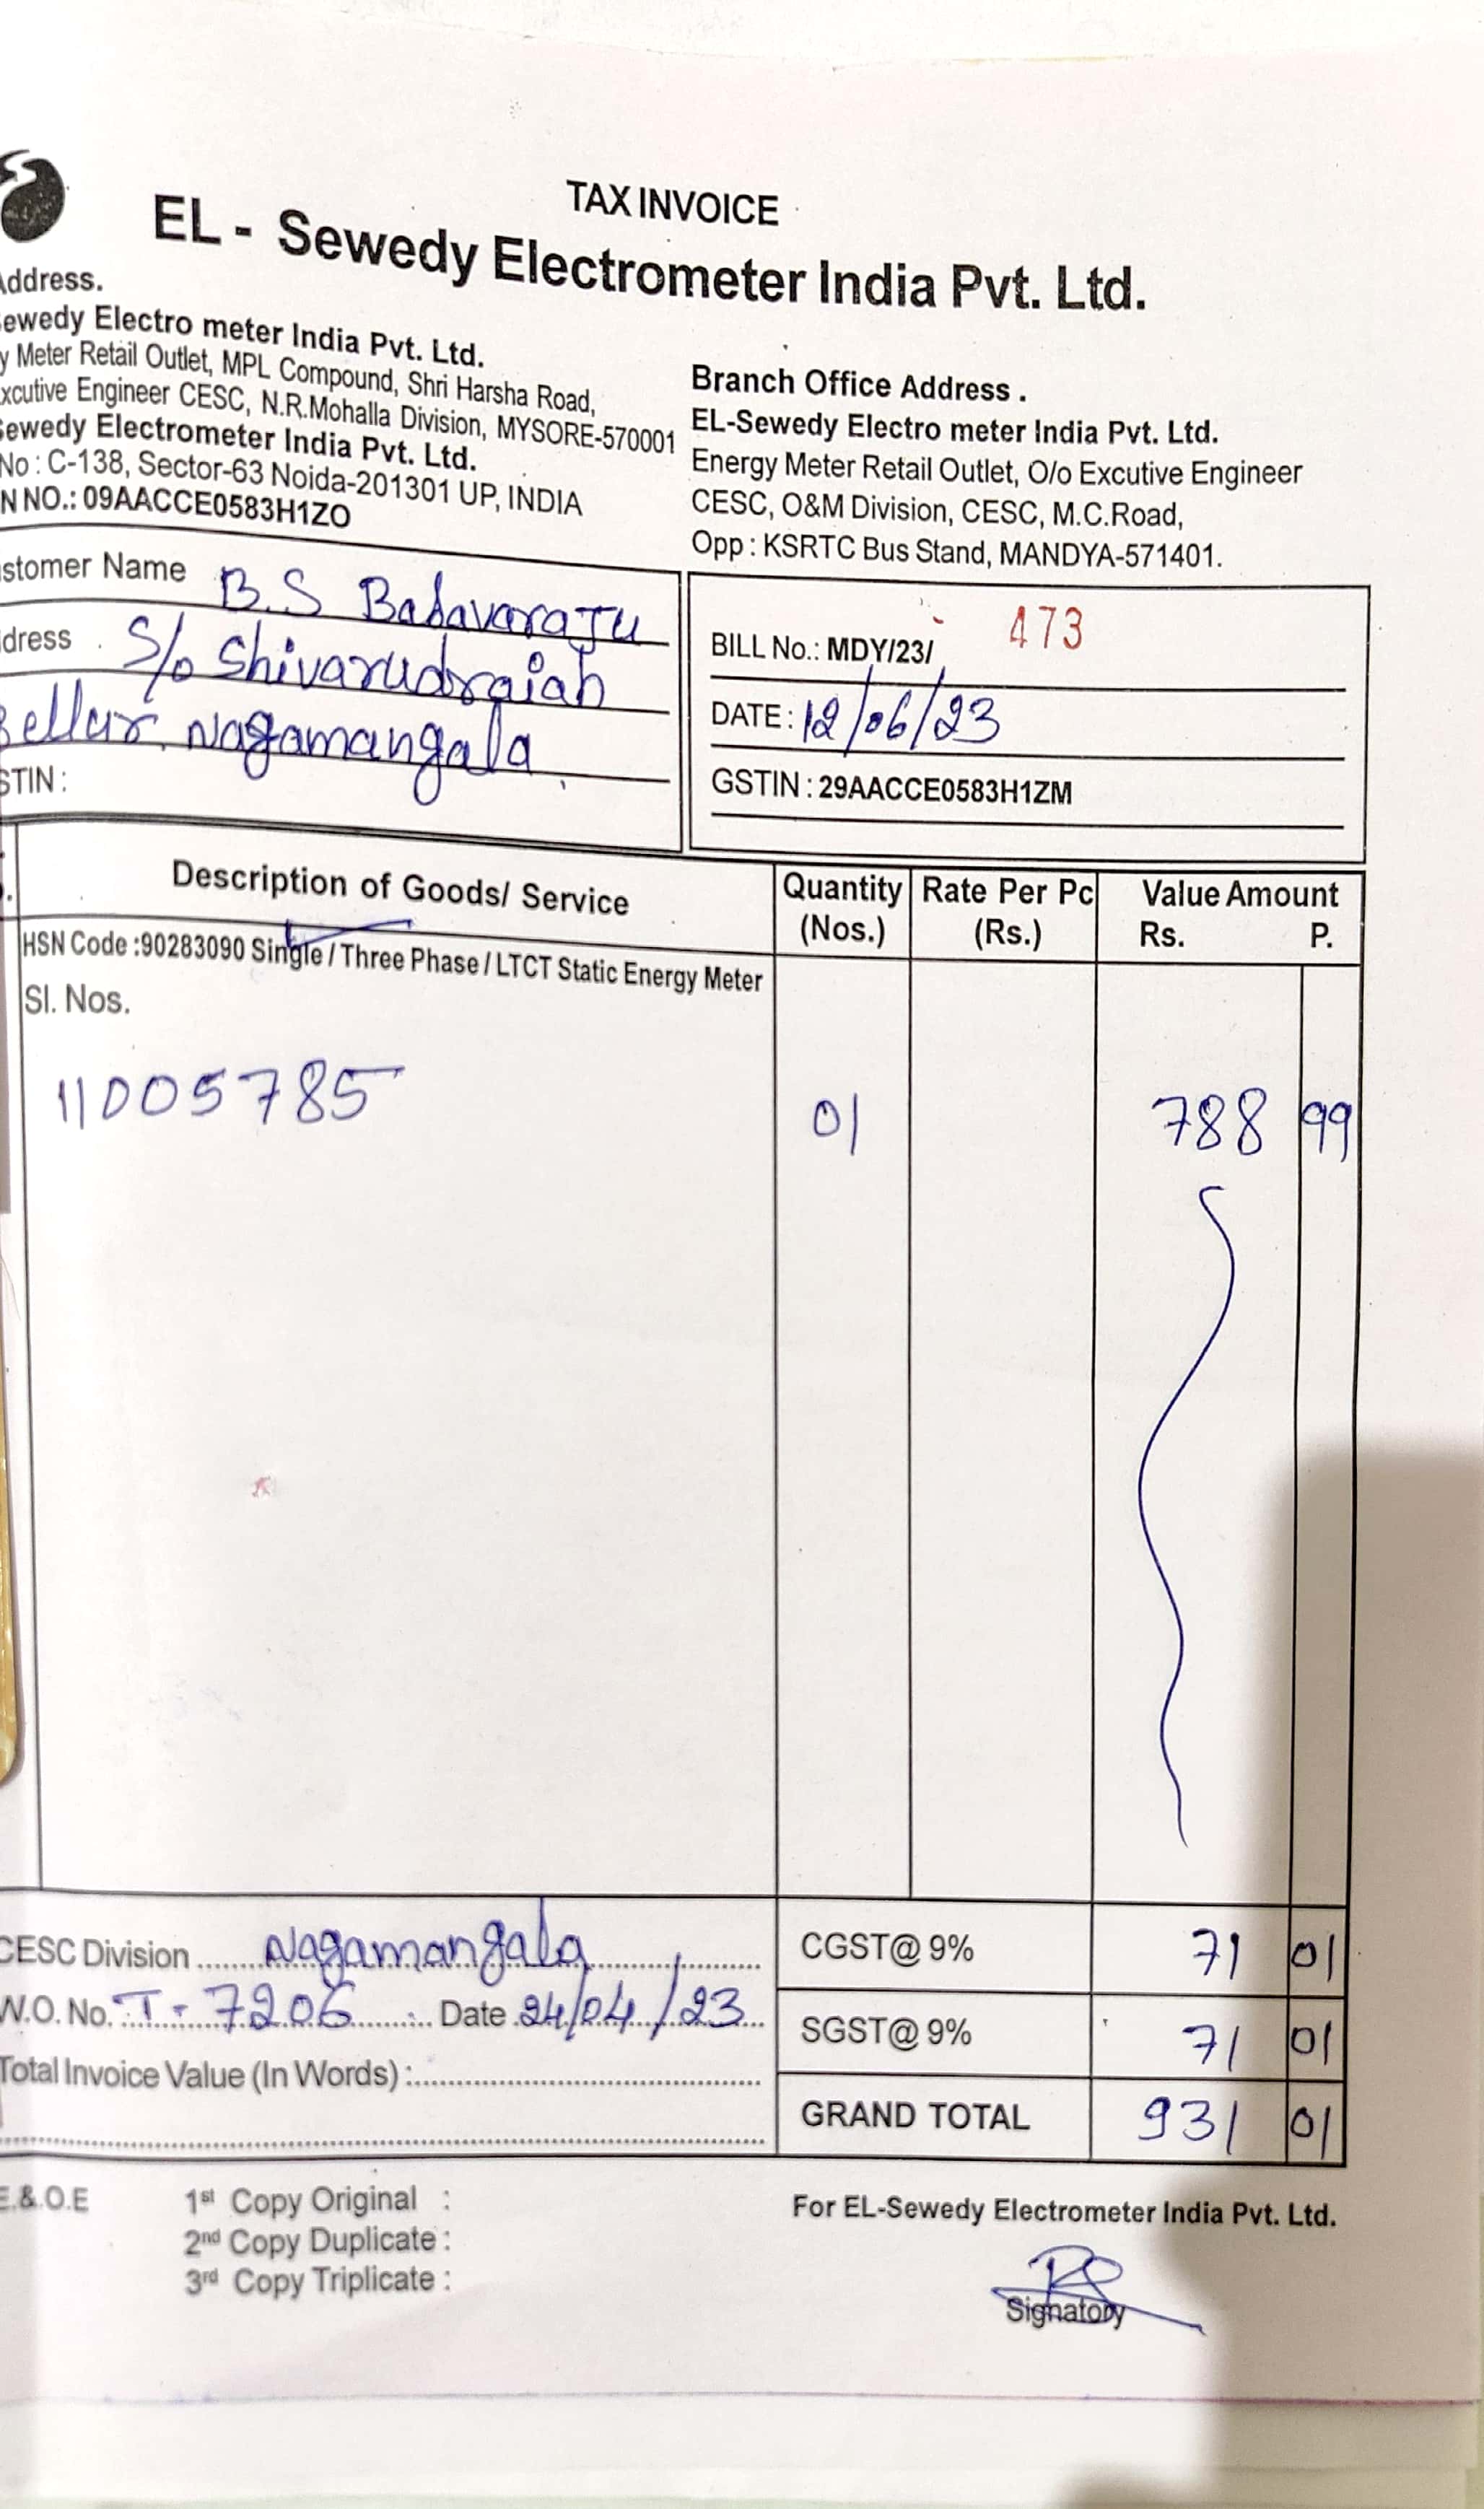 TAX INVOICE
EL - Sewedy Electrometer India Pvt. Ltd.
Address.
Sewedy Electro meter India Pvt. Ltd.
y Meter Retail Outlet, MPL Compound, Shri Harsha Road,
xcutive Engineer CESC, N.R.Mohalla Division, MYSORE-570001
Sewedy Electrometer India Pvt. Ltd.
No : C-138, Sector-63 Noida-201301 UP, INDIA
N NO.: 09AACCE0583H1ZO
Branch Office Address .
EL-Sewedy Electro meter India Pvt. Ltd.
Energy Meter Retail Outlet, O/o Excutive Engineer
CESC, O&M Division, CESC, M.C.Road,
Opp : KSRTC Bus Stand, MANDYA-571401.
stomer Name B.S Basavaraju
dress S/o Shivarudraiah
Bellur, Nagamangala
STIN :
BILL No.: MDY/23/ 473
DATE : 12/06/23
GSTIN : 29AACCE0583H1ZM
Description of Goods/ Service Quantity (Nos.) Rate Per Pc (Rs.) Value Amount Rs. P.
HSN Code :90283090 Single / Three Phase / LTCT Static Energy Meter
Sl. Nos.
11005785 01 788 99
CESC Division Nagamangala CGST@ 9% 71 01
W.O. No. T-7206 Date 24/04/23 SGST@ 9% 71 01
Total Invoice Value (In Words) :
GRAND TOTAL 931 01
E.&.O.E 1st Copy Original :
2nd Copy Duplicate :
3rd Copy Triplicate :
For EL-Sewedy Electrometer India Pvt. Ltd.
Signatory